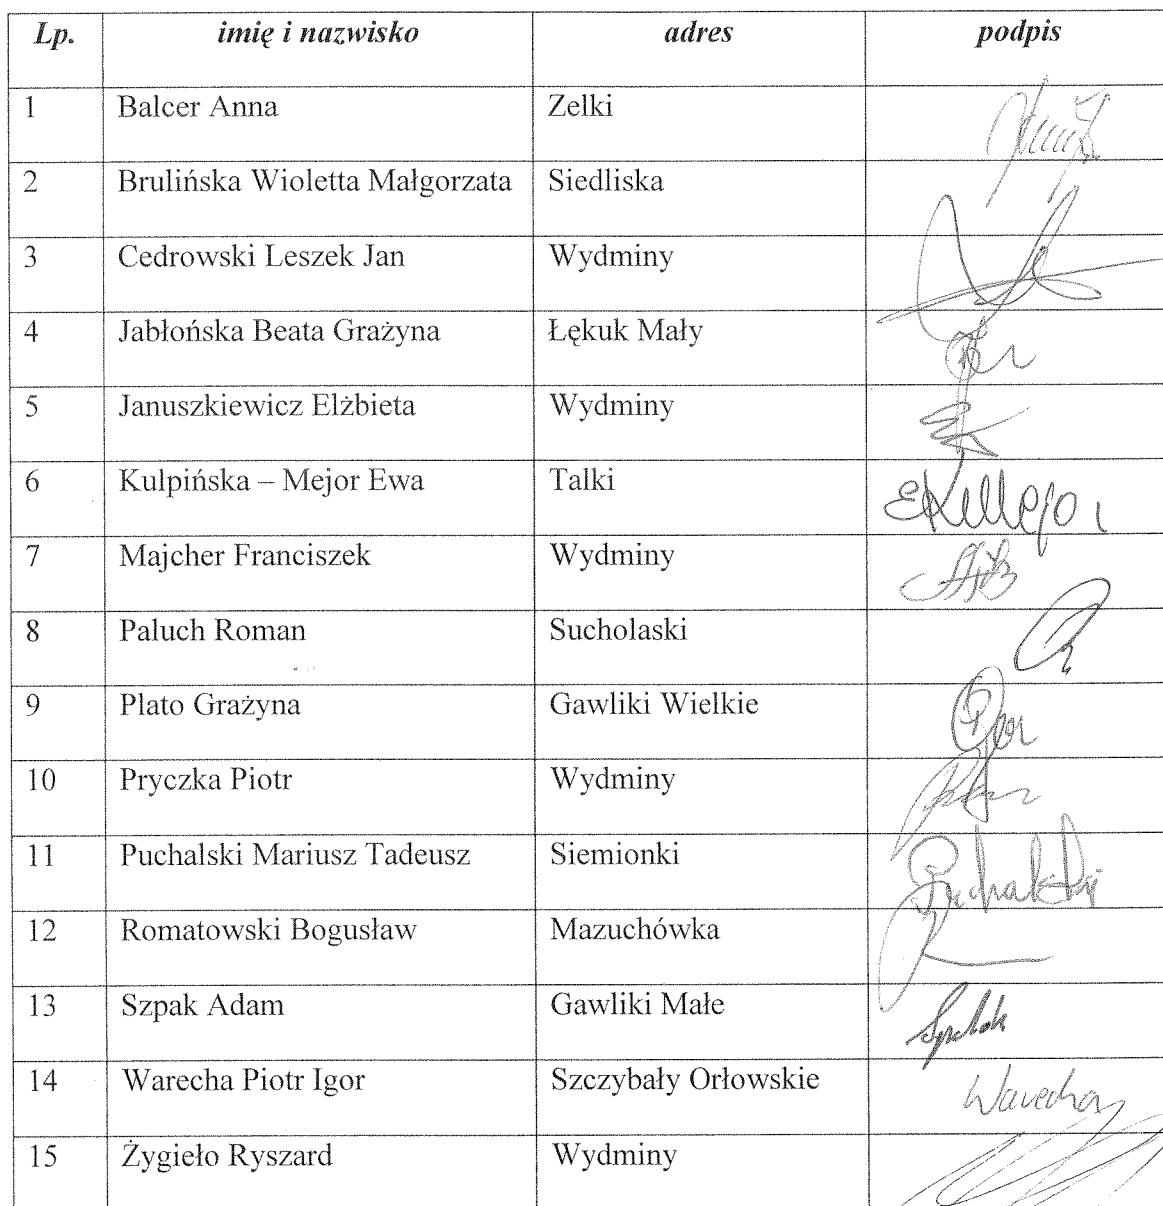 Lp. imię i nazwisko adres podpis
1 Balcer Anna Zelki
2 Brulińska Wioletta Małgorzata Siedliska
3 Cedrowski Leszek Jan Wydminy
4 Jabłońska Beata Grażyna Łękuk Mały
5 Januszkiewicz Elżbieta Wydminy
6 Kulpińska – Mejor Ewa Talki
7 Majcher Franciszek Wydminy
8 Paluch Roman Sucholaski
9 Plato Grażyna Gawliki Wielkie
10 Pryczka Piotr Wydminy
11 Puchalski Mariusz Tadeusz Siemionki Puchalski
12 Romatowski Bogusław Mazuchówka
13 Szpak Adam Gawliki Małe
14 Warecha Piotr Igor Szczybały Orłowskie Warecha
15 Żygieło Ryszard Wydminy